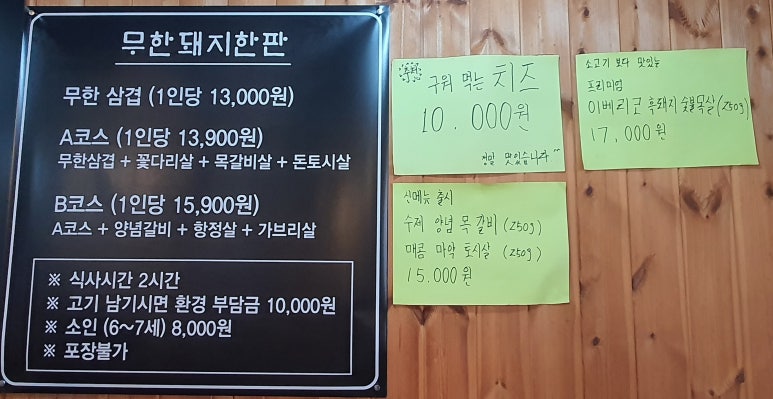 무한돼지한판
무한 삼겹 (1인당 13,000원)
A코스 (1인당 13,900원)
무한삼겹 + 꽃다리살 + 목갈비살 + 돈토시살
B코스 (1인당 15,900원)
A코스 + 양념갈비 + 항정살 + 가브리살
※ 식사시간 2시간
※ 고기 남기시면 환경 부담금 10,000원
※ 소인 (6～7세) 8,000원
※ 포장불가
추천
구워 먹는 치즈
10.000원
정말 맛있습니다^^
신메뉴 출시
수제 양념 목 갈비 (250g)
매콤 마약 토시살 (250g)
15.000원
소고기 보다 맛있는
프리미엄
이베리코 흑돼지 숯불목살(250g)
17,000원